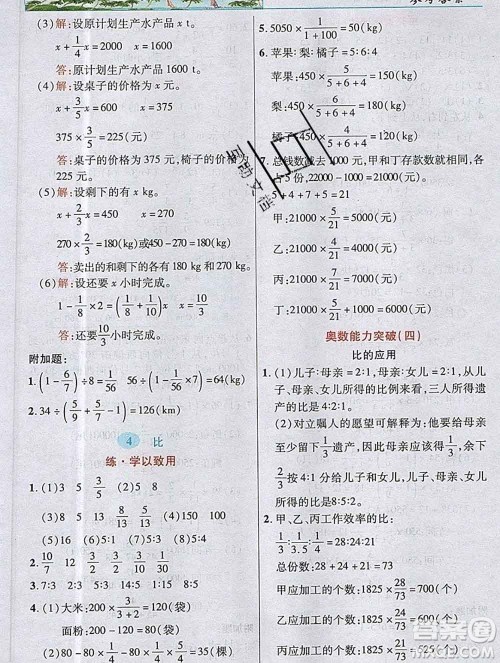 (3) 解:设原计划生产水产品 x t。
x+1/4x=2000 x=1600
答:原计划生产水产品 1600 t。
(4) 解:设桌子的价格为 x 元。
x+3/5x=600 x=375
375×3/5=225(元)
答:桌子的价格为 375 元,椅子的价格为 225 元。
(5) 解:设剩下的有 x kg。
x+2/3x=450 x=270
270×2/3=180(kg)或450-270=180(kg)
答:卖出的和剩下的有 180 kg 和 270 kg。
(6) 解:设还要 x 小时完成。
1-1/8×2=(1/8+1/10)x x=10/3
答:还要10/3小时完成。
附加题:
1.(1-6/7)÷8=1/56 1÷(1-1/56×7)=64(kg)
2.34÷(5/9+5/7-1)=126(km)
4 比
练·学以致用
1.(1)3 5 3/5 (2)5 8/13 5/13 (3)4:5
(4)180 150 (5)15 10 4/5 5/4
(5)16 (6)2:1 (7)5:8 (8)5:4
2.7/10 12/15 2/3 3/10 1/2 3/5
3.7:3 2:3 5:2 8:15
4.(1)大米:200×3/(3+2)=120(袋)
面粉:200-120=80(袋)
5.5050×1/(1+100)=50(kg)
6.苹果:梨:橘子=5:4:6
苹果:450×5/(5+6+4)=150(kg)
梨:450×6/(5+6+4)=180(kg)
橘子:450×4/(5+6+4)=120(kg)
7.总钱数减去 1000 元,甲和丁存款数就相同,各
占 5 份,22000-1000=21000(元)
5+4+7+5=21
甲:21000×5/21=5000(元)
乙:21000×4/21=4000(元)
丙:21000×7/21=7000(元)
丁:21000×5/21+1000=6000(元)
奥数能力突破(四)
比的应用
1.(1)儿子:母亲=2:1,母亲:女儿=2:1,按儿
子、母亲、女儿所得的比例来看,三人所得遗
产的比应为 4:2:1。
至少留下1/3遗产,因此母亲先得1/3,剩下的
2/3应按 4:1 分给儿子、女儿,则儿子、母亲、女儿
所得的比为 8:5:2。
2.甲、乙、丙工作效率的比:
28+24+21=73
甲应加工的个数:1825×28/73=700(个)
乙应加工的个数:1825×24/73=600(个)
丙应加工的个数:1825×21/73=525(个)